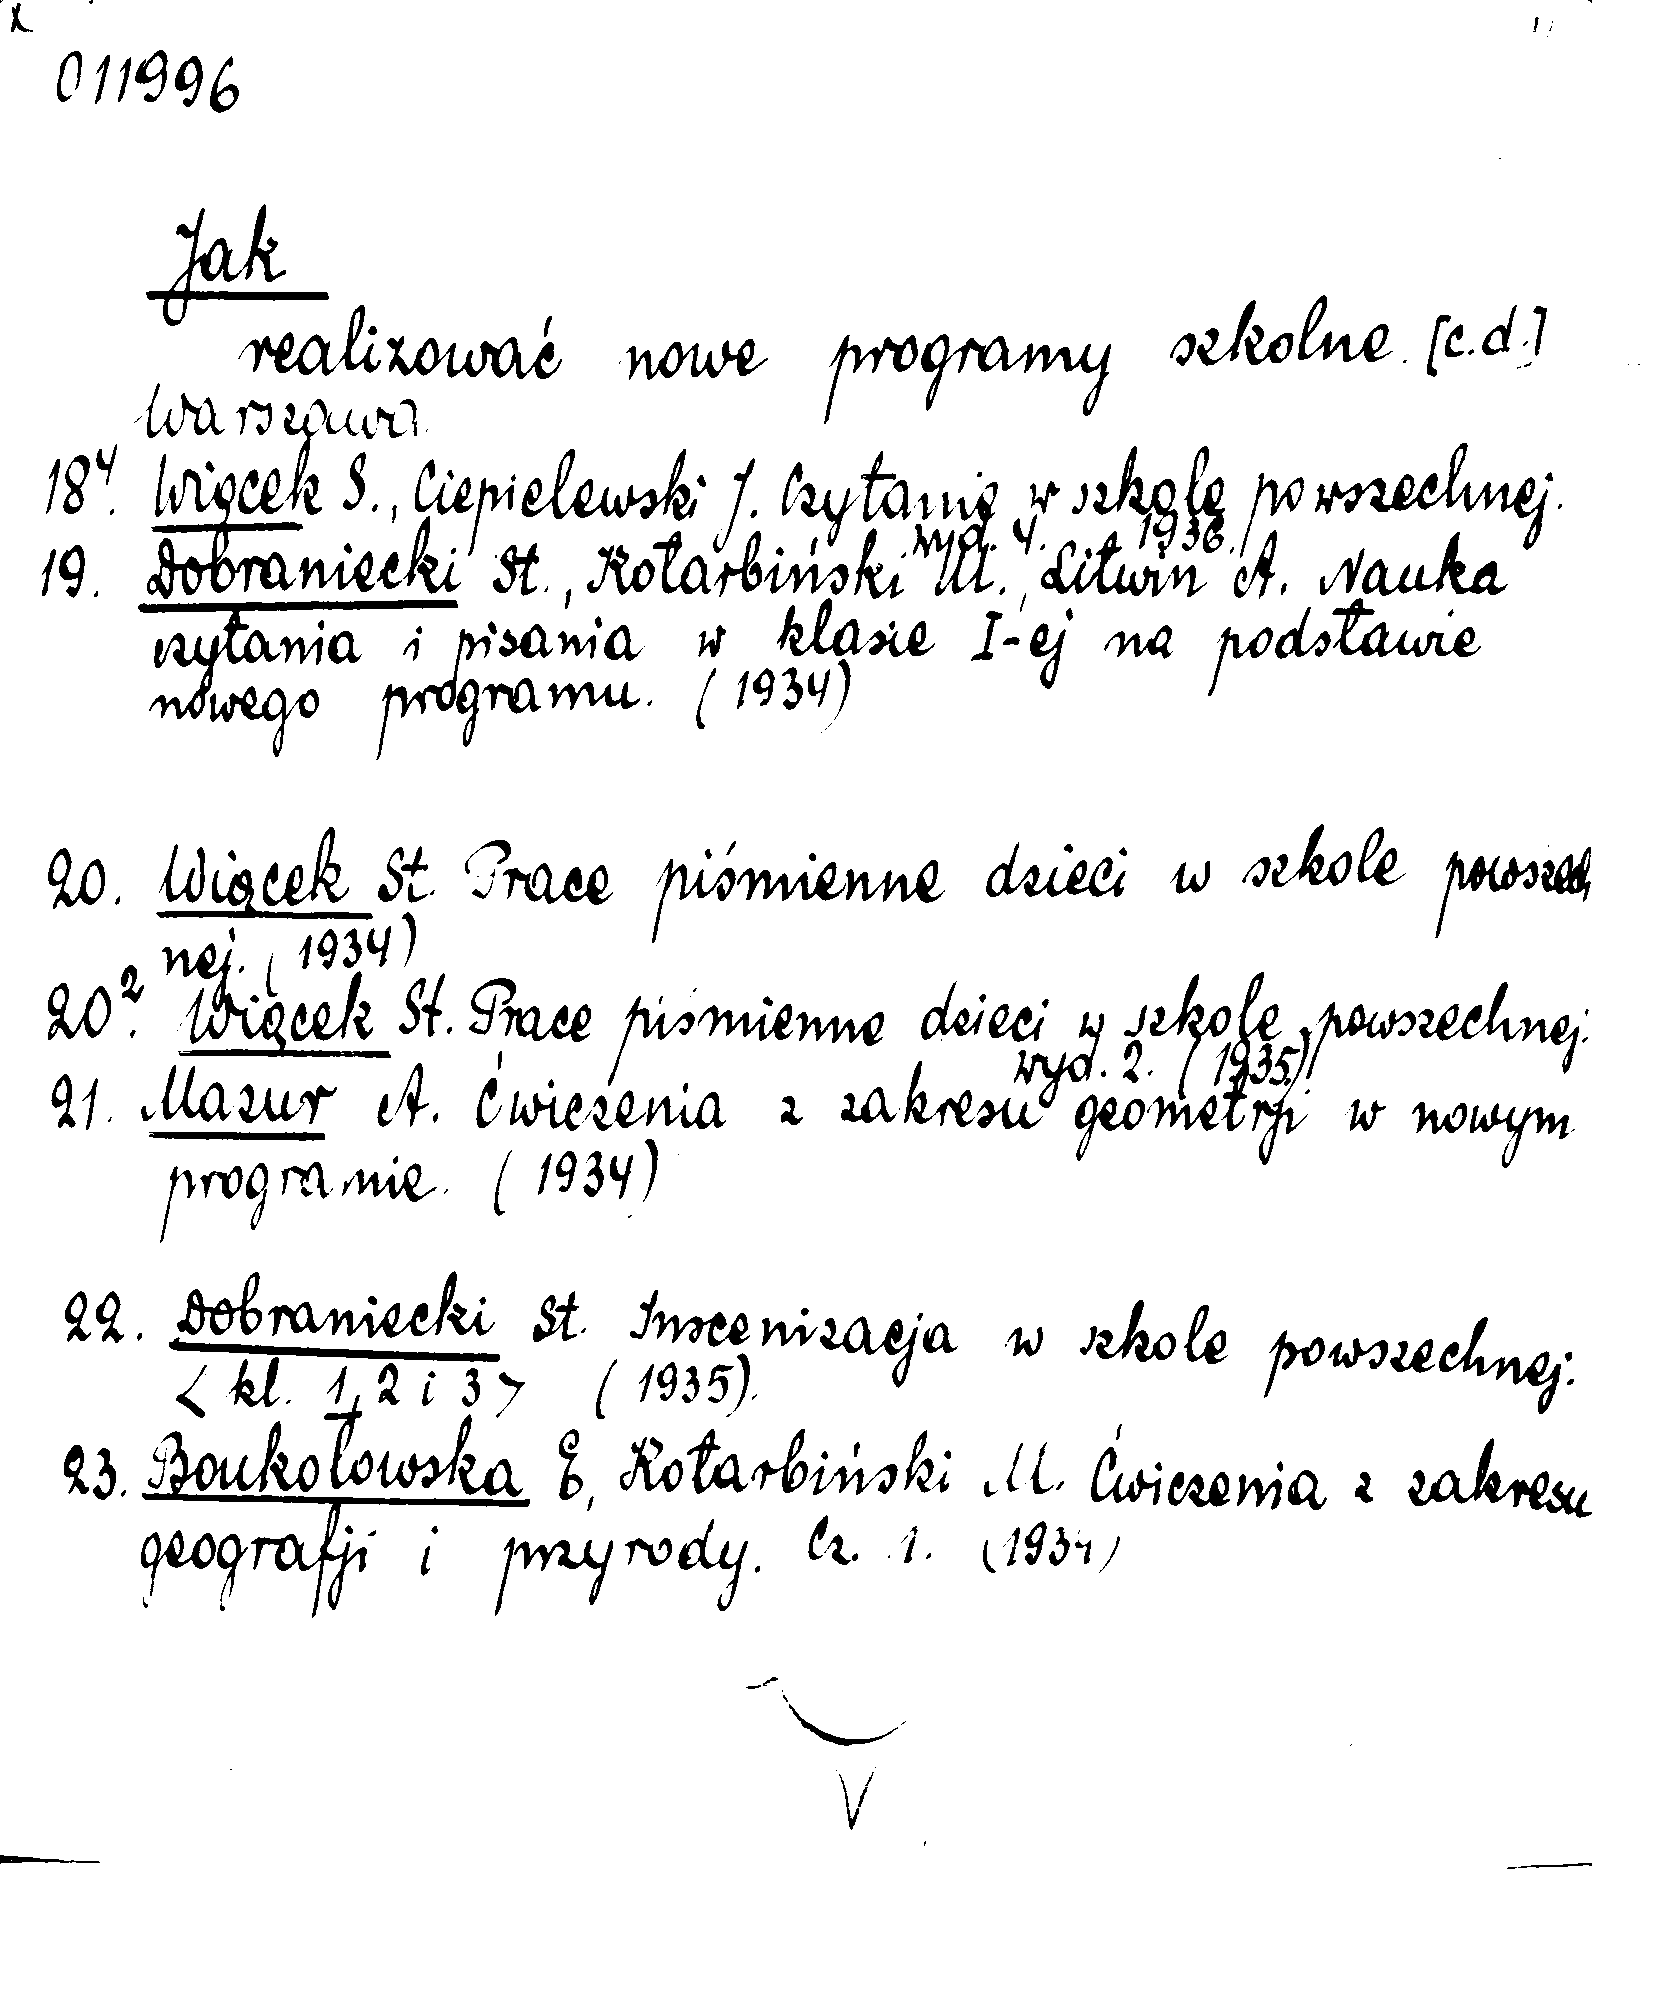 011996
Jak
realizować nowe programy szkolne. [c.d.]
Warszawa
18⁴. Wiącek S., Ciepielewski J. Czytanie w szkole powszechnej.
wyd. 4. 1936.
19. Dobraniecki St., Kotarbiński M., Litwin A. Nauka
czytania i pisania w klasie I-ej na podstawie
nowego programu. (1934)
20. Wiącek St. Prace piśmienne dzieci w szkole powszech
nej. (1934)
20². Wiącek St. Prace piśmienne dzieci w szkole powszechnej.
wyd. 2. (1935)
21. Mazur A. Ćwiczenia z zakresu geometrji w nowym
programie. (1934)
22. Dobraniecki St. Inscenizacja w szkole powszechnej.
< kl. 1, 2 i 3 > (1935).
23. Boukołowska E, Kotarbiński M. Ćwiczenia z zakresu
geografji i przyrody. Cz. 1. (1934)
V